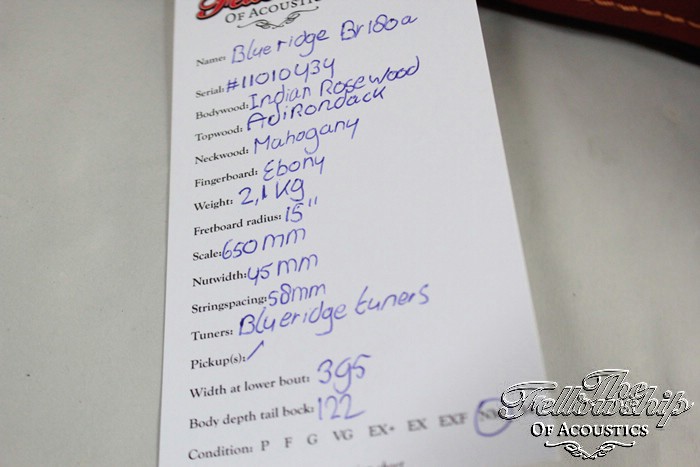 OF ACOUSTICS
Name: Blueridge Br180a
Serial: #11010434
Bodywood: Indian Rosewood
Topwood: AdiRondack
Neckwood: Mahogany
Fingerboard: Ebony
Weight: 2,1 kg
Fretboard radius: 15"
Scale: 650mm
Nutwidth: 45mm
Stringspacing: 58mm
Tuners: Blueridge tuners
Pickup(s): /
Width at lower bout: 395
Body depth tail bock: 122
Condition: P F G VG EX- EX EXF
The
Fellowship
OF ACOUSTICS